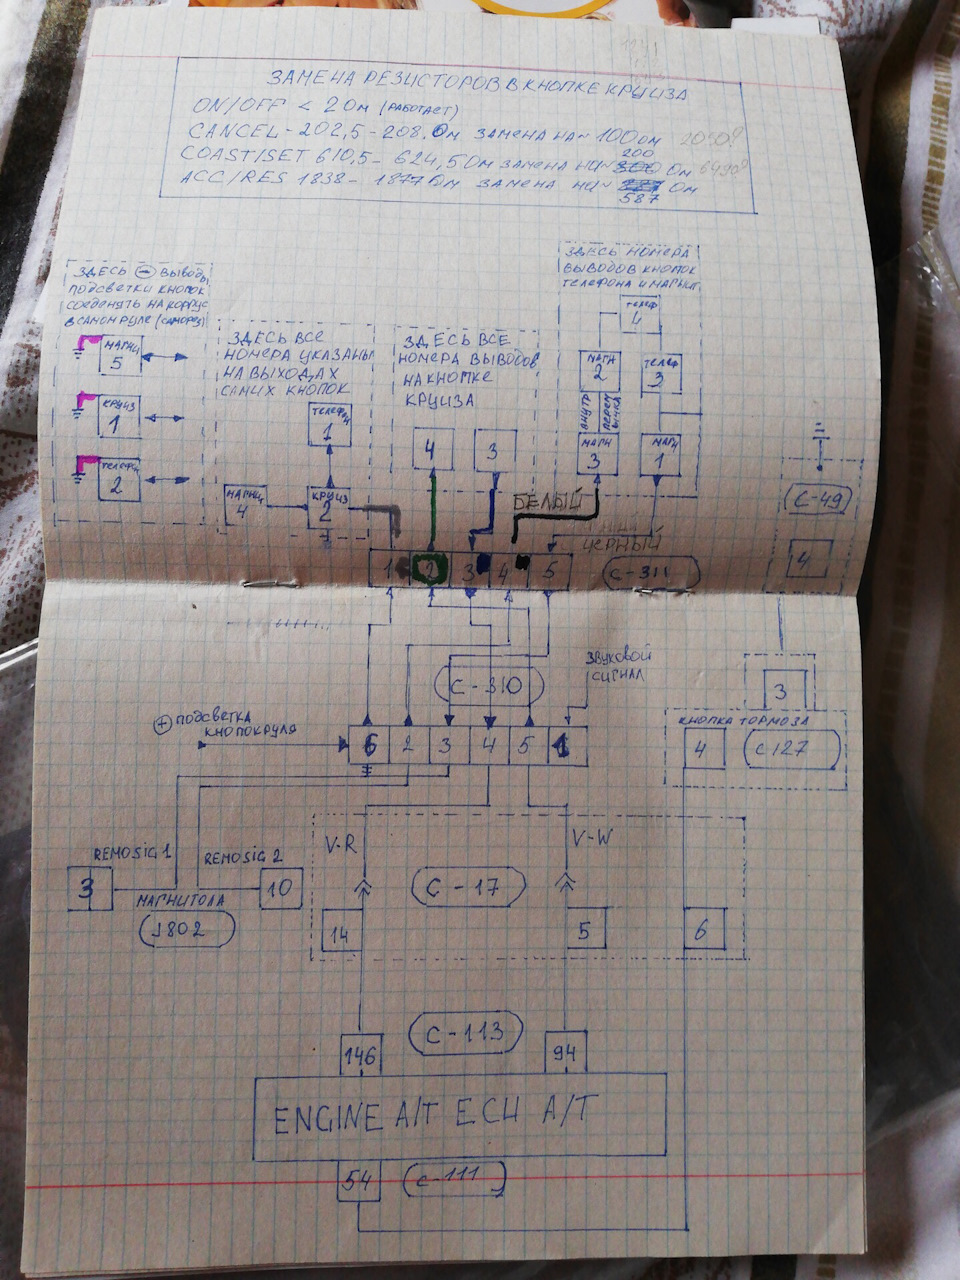 ЗАМЕНА РЕЗИСТОРОВ В КНОПКЕ КРУИЗА
ON/OFF < 2 ОМ (РАБОТАЕТ)
CANCEL - 202,5 - 208,0м ЗАМЕНА НА ~ 100 ОМ 2050?
200
COAST/SET 610,5 - 624,5 ОМ ЗАМЕНА НА ~ 300 ОМ 6490?
ACC/RES 1838 - 1877 ОМ ЗАМЕНА НА ~ ОМ
587
ЗДЕСЬ (-) ВЫВОДЫ
ПОДСВЕТКИ КНОПОК
СОЕДЕНУТЬ НА КОРПУС
В САМОМ РУЛЕ (САМОРЕЗ)
МАГНИТ
5
КРУИЗ
1
ТЕЛЕФОН
2
ЗДЕСЬ ВСЕ
НОМЕРА УКАЗАНЫ
НА ВЫХОДАХ
САМИХ КНОПОК
ТЕЛЕФОН
1
МАГНИТ
4
КРУИЗ
2
ЗДЕСЬ ВСЕ
НОМЕРА ВЫВОДОВ
НА КНОПКЕ
КРУИЗА
4
3
ЗДЕСЬ НОМЕРА
ВЫВОДОВ КНОПОК
ТЕЛЕФОНА И МАГНИТ.
ТЕЛЕФ
4
МАГН
2
ТЕЛЕФ
3
ВНУТР
ПЕРЕМЫЧКА
МАГН
3
МАГН
1
БЕЛЫЙ
ЧЕРНЫЙ
1 2 3 4 5
C-311
C-49
4
C-310
ЗВУКОВОЙ
СИГНАЛ
(+) ПОДСВЕТКА
КНОПОК РУЛЯ
6 2 3 4 5 1
3
КНОПКА ТОРМОЗА
4
C127
V-R
V-W
REMOSIG 1
REMOSIG 2
3
10
МАГНИТОЛА
J802
C-17
14
5
6
C-113
146
94
ENGINE A/T ECU A/T
54
C-111